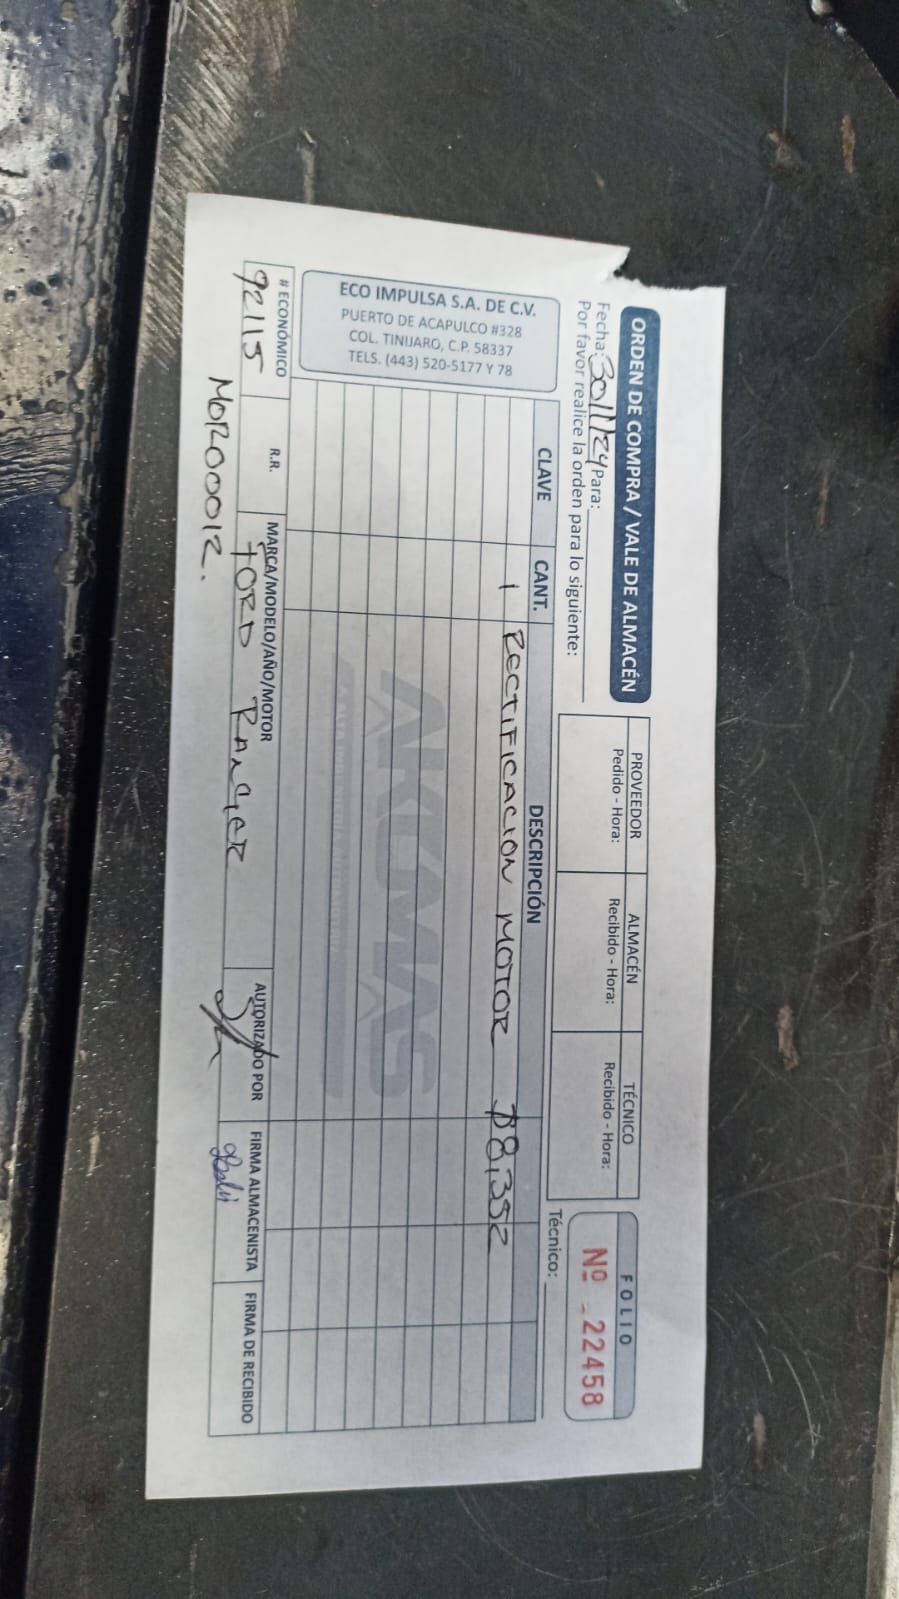 ORDEN DE COMPRA / VALE DE ALMACÉN
Fecha: 30/1/24 Para:
Por favor realice la orden para lo siguiente:
PROVEEDOR
Pedido - Hora:
ALMACÉN
Recibido - Hora:
TÉCNICO
Recibido - Hora:
FOLIO
Nº 22458
Técnico:
ECO IMPULSA S.A. DE C.V.
PUERTO DE ACAPULCO #328
COL. TINIJARO, C.P. 58337
TELS. (443) 520-5177 Y 78
CLAVE CANT. DESCRIPCIÓN
1 RECTIFICACION MOTOR $8,352
AKUMAS
# ECONÓMICO R.R. MARCA/MODELO/AÑO/MOTOR AUTORIZADO POR FIRMA ALMACENISTA FIRMA DE RECIBIDO
92115 FORD RANGER
MOR00012.